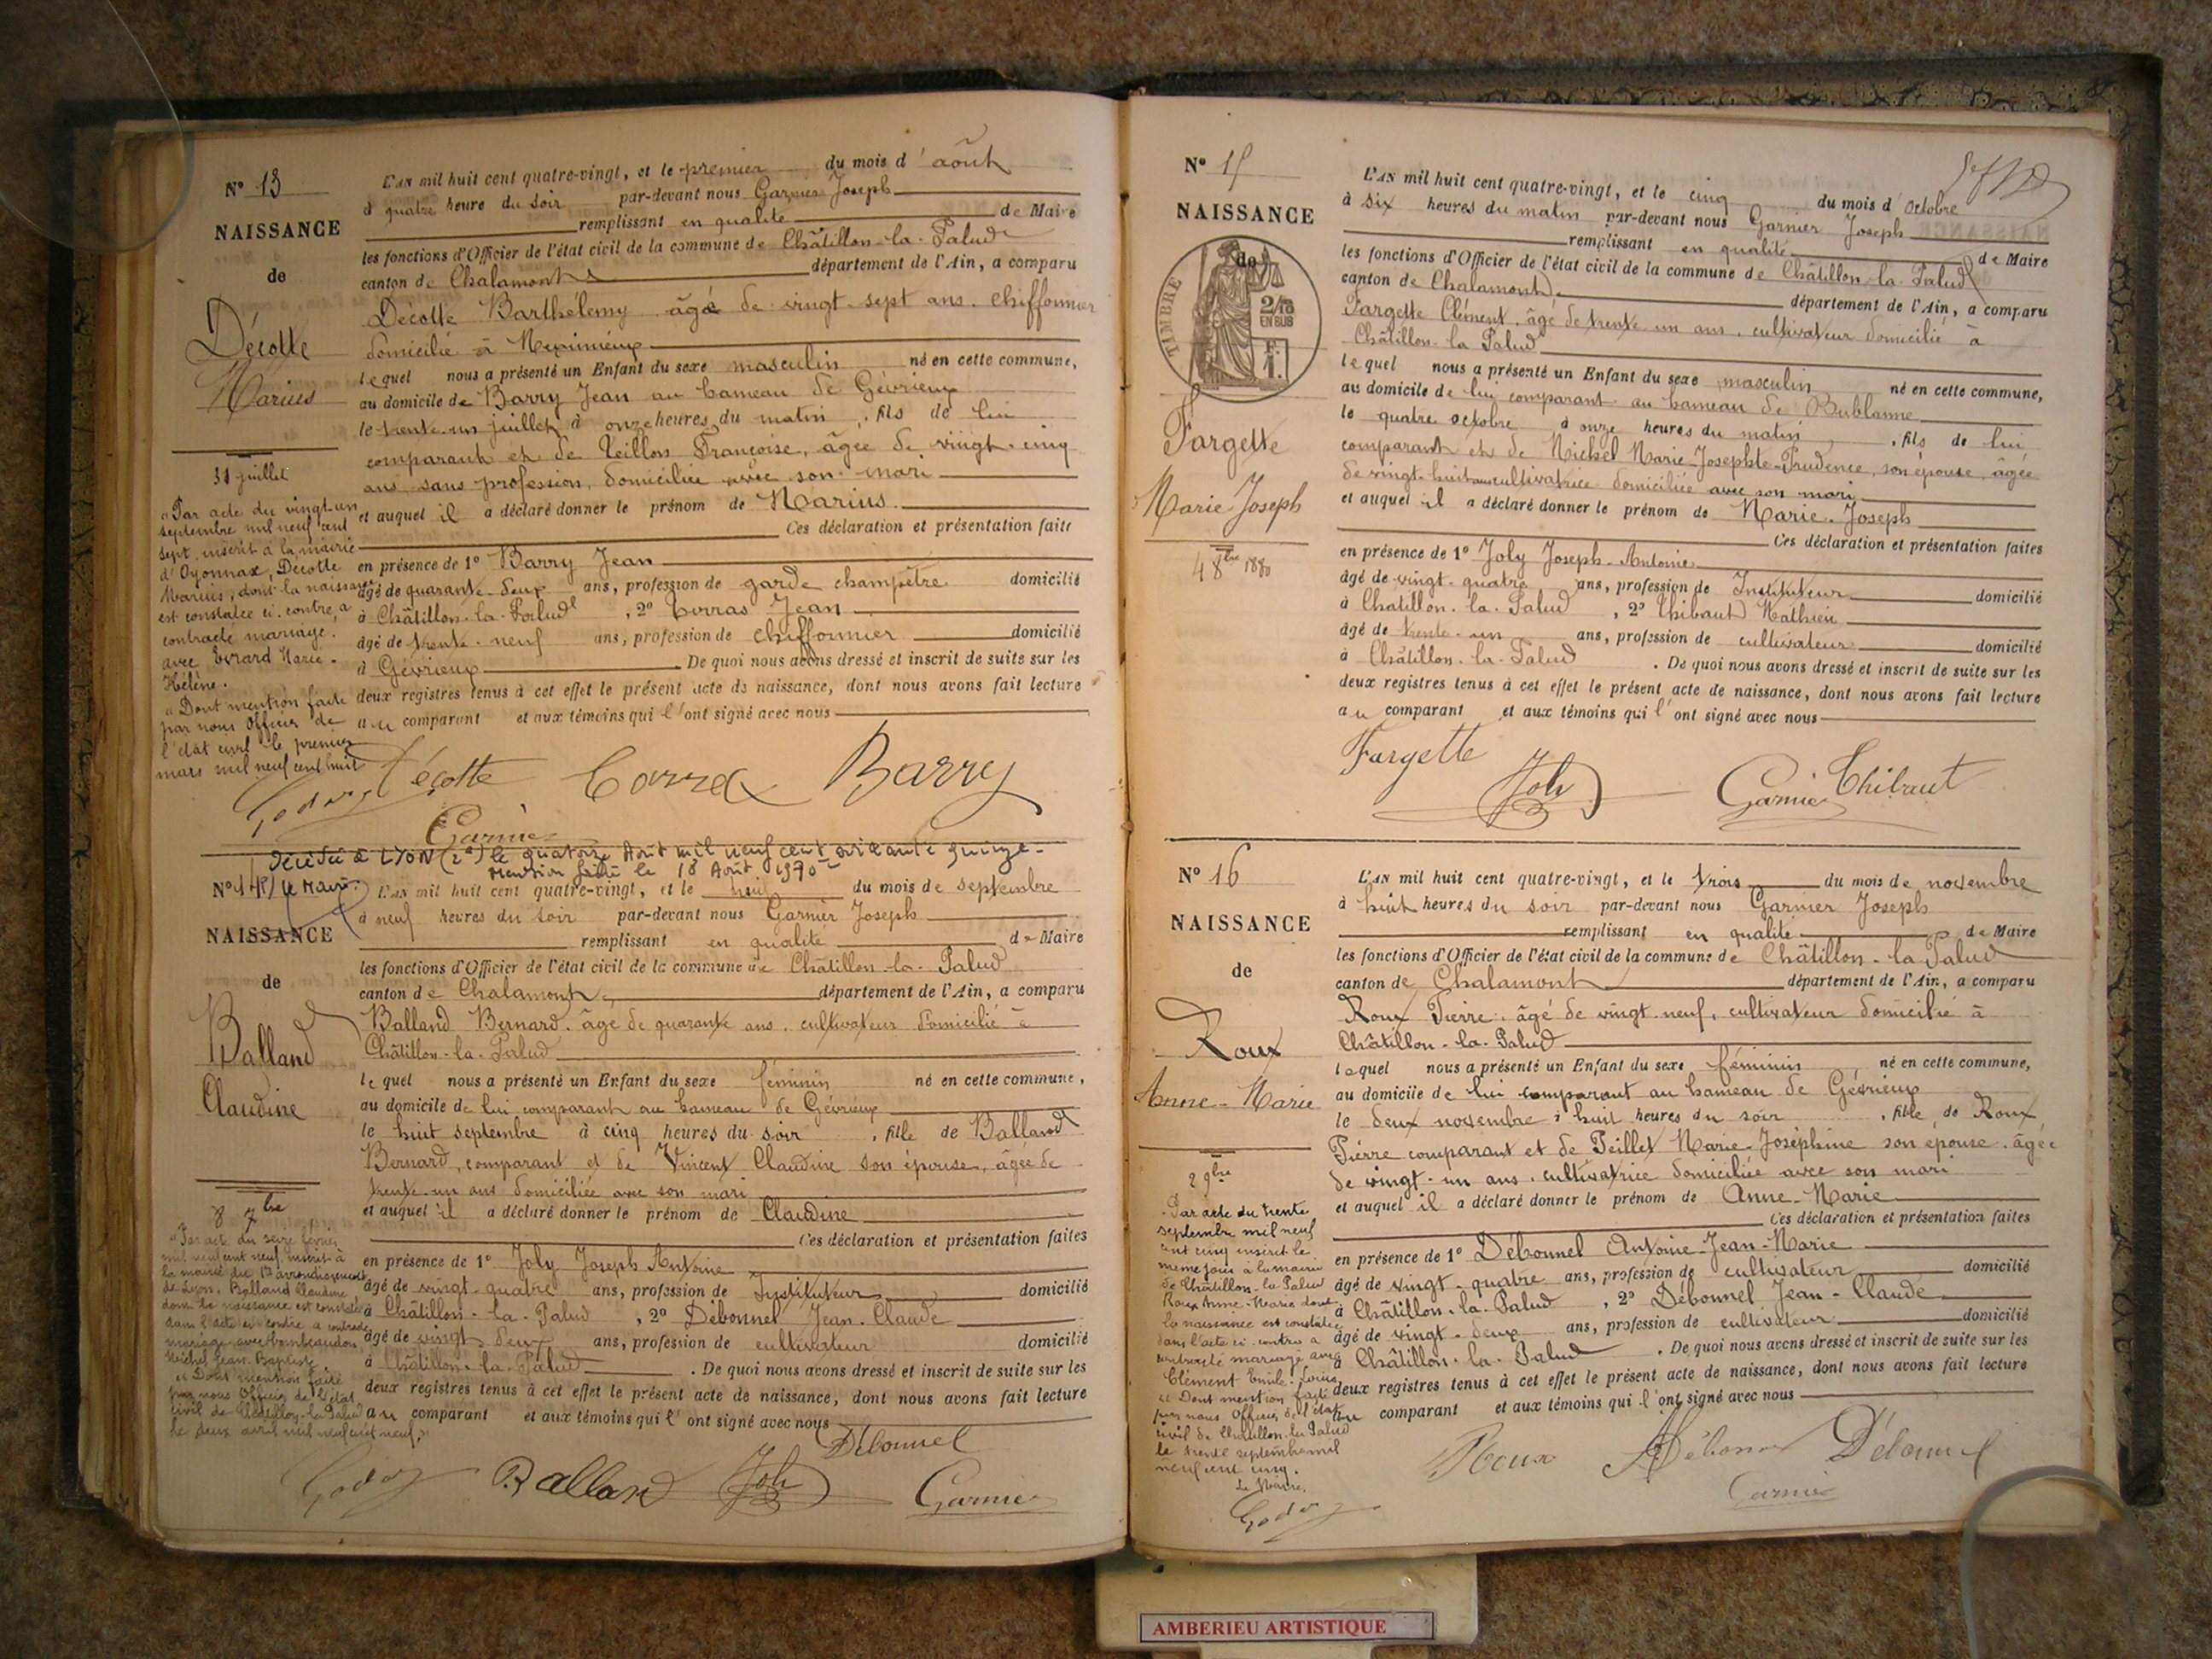 N° 13
NAISSANCE
de
Décotte
Marius
31 juillet
"Par acte du vingt-un
septembre mil neuf cent
sept, inscrit à la mairie
d'Oyonnax, Décotte
Marius, dont la naissance
est constatée ci-contre, a
contracté mariage
avec Evrard Marie-
Hélène.
"Dont mention faite
par nous Officier de
l'état civil le premier
mars mil neuf cent huit
L'AN mil huit cent quatre-vingt, et le premier du mois d'août
à quatre heure du soir par-devant nous Garnier Joseph
remplissant en qualité de Maire
les fonctions d'Officier de l'état civil de la commune de Châtillon-la-Palud
canton de Chalamont département de l'Ain, a comparu
Décotte Barthélemy âgé de vingt-sept ans. chiffonnier
domicilié à Meximieux
lequel nous a présenté un Enfant du sexe masculin né en cette commune,
au domicile de Barry Jean au hameau de Gévrieux
le trente-un juillet à onze heures du matin, fils de lui
comparant et de Françoise, âgée de vingt-cinq
ans, sans profession, domiciliée avec son mari
et auquel il a déclaré donner le prénom de Marius.
Ces déclaration et présentation faite
en présence de 1° Barry Jean
âgé de quarante-deux ans, profession de garde champêtre domicilié
à Châtillon-la-Palud, 2° Jean
âgé de trente-neuf ans, profession de chiffonnier domicilié
à Gévrieux. De quoi nous avons dressé et inscrit de suite sur les
deux registres tenus à cet effet le présent acte de naissance, dont nous avons fait lecture
au comparant et aux témoins qui l'ont signé avec nous
Décotte Barry
Garnier
Décédée à LYON (2e) le quatorze Août mil neuf cent soixante quinze-
mention faite le 18 Août
N° 14 le Maire
NAISSANCE
de
Balland
Claudine
8 7bre
"Par acte du seize février
mil neuf cent neuf, inscrit à
la mairie du arrondissement
de Lyon, Balland Claudine
dont la naissance est constatée
dans l'acte ci-contre a contracté
mariage avec
Michel Jean-Baptiste.
"Dont mention faite
par nous Officier de l'état
civil de Châtillon-la-Palud
le deux avril mil neuf cent neuf."
L'AN mil huit cent quatre-vingt, et le neuf du mois de septembre
à neuf heures du soir par-devant nous Garnier Joseph
remplissant en qualité de Maire
les fonctions d'Officier de l'état civil de la commune de Châtillon-la-Palud
canton de Chalamont département de l'Ain, a comparu
Balland Bernard. âgé de quarante ans. cultivateur domicilié à
Châtillon-la-Palud
lequel nous a présenté un Enfant du sexe féminin né en cette commune,
au domicile de lui comparant au hameau de Gévrieux
le huit septembre à cinq heures du soir, fille de Balland
Bernard, comparant et de Vincent Claudine son épouse, âgée de
trente-un ans domiciliée avec son mari
et auquel il a déclaré donner le prénom de Claudine
Ces déclaration et présentation faites
en présence de 1° Joly Joseph Antoine
âgé de vingt-quatre ans, profession de Instituteur domicilié
à Châtillon-la-Palud, 2° Débonnel Jean-Claude
âgé de vingt-deux ans, profession de cultivateur domicilié
à Châtillon-la-Palud. De quoi nous avons dressé et inscrit de suite sur les
deux registres tenus à cet effet le présent acte de naissance, dont nous avons fait lecture
au comparant et aux témoins qui l'ont signé avec nous
Débonnel
Balland Joly Garnier
N° 15
NAISSANCE
de
TIMBRE
2/10
EN SUS
F.
1.
Fargette
Marie Joseph
4 8bre 1880
L'AN mil huit cent quatre-vingt, et le cinq du mois d'octobre
à six heures du matin par-devant nous Garnier Joseph
remplissant en qualité de Maire
les fonctions d'Officier de l'état civil de la commune de Châtillon-la-Palud
canton de Chalamont département de l'Ain, a comparu
Fargette Clément, âgé de trente un ans, cultivateur domicilié à
Châtillon-la-Palud
lequel nous a présenté un Enfant du sexe masculin né en cette commune,
au domicile de lui comparant au hameau de Bublanne
le quatre octobre à onze heures du matin, fils de lui
comparant et de Michel Marie-Josephte-Prudence, son épouse, âgée
de vingt-huit ans cultivatrice domiciliée avec son mari
et auquel il a déclaré donner le prénom de Marie-Joseph
Ces déclaration et présentation faites
en présence de 1° Joly Joseph-Antoine
âgé de vingt-quatre ans, profession de Instituteur domicilié
à Châtillon-la-Palud, 2° Thibaut Mathieu
âgé de trente-un ans, profession de cultivateur domicilié
à Châtillon-la-Palud. De quoi nous avons dressé et inscrit de suite sur les
deux registres tenus à cet effet le présent acte de naissance, dont nous avons fait lecture
au comparant et aux témoins qui l'ont signé avec nous
Fargette Joly Garnier Thibaut
N° 16
NAISSANCE
de
Roux
Anne-Marie
2 9bre
"Par acte du trente
septembre mil neuf
cent cinq inscrit le
même jour à la mairie
de Châtillon-la-Palud
Roux Anne-Marie dont
la naissance est constatée
dans l'acte ci-contre a
contracté mariage avec
Clément Emile-Louis
"Dont mention faite
par nous Officier de l'état
civil de Châtillon-la-Palud
le trente septembre mil
neuf cent cinq.
Le Maire,
L'AN mil huit cent quatre-vingt, et le trois du mois de novembre
à huit heures du soir par-devant nous Garnier Joseph
remplissant en qualité de Maire
les fonctions d'Officier de l'état civil de la commune de Châtillon-la-Palud
canton de Chalamont département de l'Ain, a comparu
Roux Pierre. âgé de vingt-neuf, cultivateur domicilié à
Châtillon-la-Palud
lequel nous a présenté un Enfant du sexe féminin né en cette commune,
au domicile de lui comparant au hameau de Gévrieux
le deux novembre à huit heures du soir, fille de Roux
Pierre comparant et de Peillet Marie Joséphine son épouse, âgée
de vingt-un ans, cultivatrice domiciliée avec son mari
et auquel il a déclaré donner le prénom de Anne-Marie
Ces déclaration et présentation faites
en présence de 1° Débonnel Antoine-Jean-Marie
âgé de vingt-quatre ans, profession de cultivateur domicilié
à Châtillon-la-Palud, 2° Débonnel Jean-Claude
âgé de vingt-deux ans, profession de cultivateur domicilié
à Châtillon-la-Palud. De quoi nous avons dressé et inscrit de suite sur les
deux registres tenus à cet effet le présent acte de naissance, dont nous avons fait lecture
au comparant et aux témoins qui l'ont signé avec nous
Roux Débonnel
Garnier
AMBERIEU ARTISTIQUE